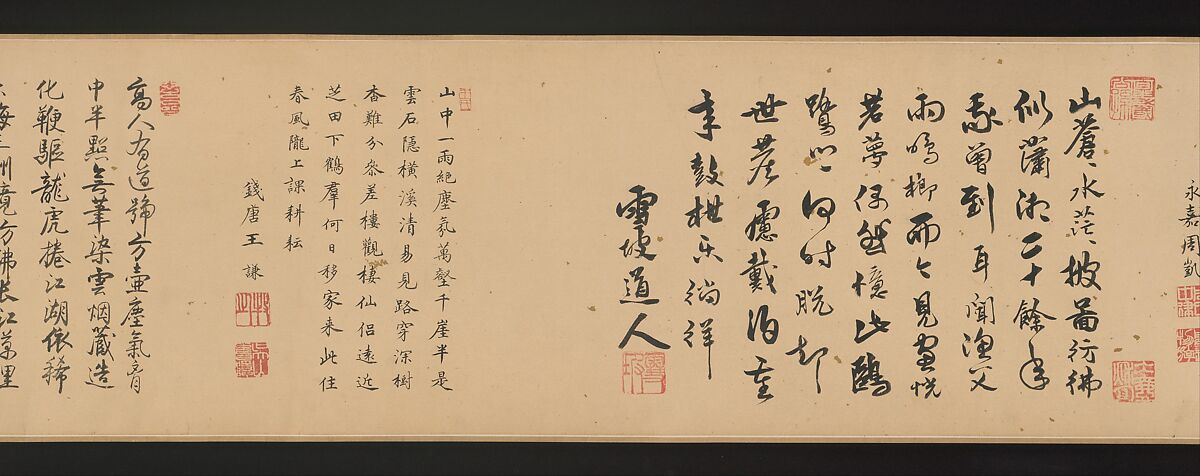 永嘉周凱
山蒼〻水茫〻披啚彷彿
似瀟湘二十餘年
我曾到耳聞漁父
雨鳴榔而今見畫恍
若夢偶然憶此鷗
鷺心何时脱却
世塵慮戴泊
来鼓枻乐徜徉
雪坡道人
山中一雨絶塵氛萬壑千崖半是
雲石隱橫溪清易見路穿深樹
杳難分參差樓觀棲仙侣遠近
芝田下鶴羣何日移家来此住
春風隴上課耕耘
錢唐王謙
高人有道號方壺塵氣胷
中半點無筆染雲烟蔵造
化鞭驅龍虎捲江湖依稀
海三州竟方彿長江萬里